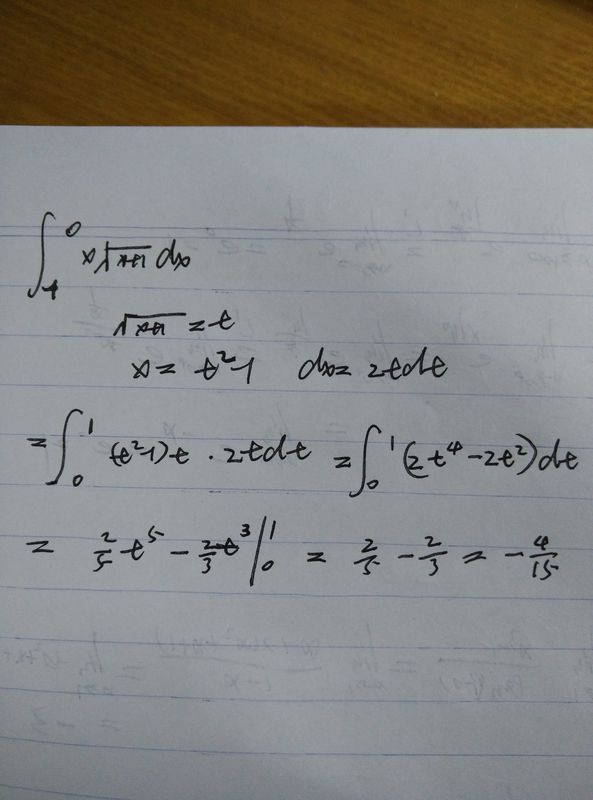 ∫_{-1}^{0} x√(x+1) dx
√(x+1) = t
x = t²-1 dx = 2tdt
= ∫_{0}^{1} (t²-1)t · 2tdt = ∫_{0}^{1} (2t⁴-2t²)dt
= 2/5 t⁵ - 2/3 t³ |_{0}^{1} = 2/5 - 2/3 = -4/15